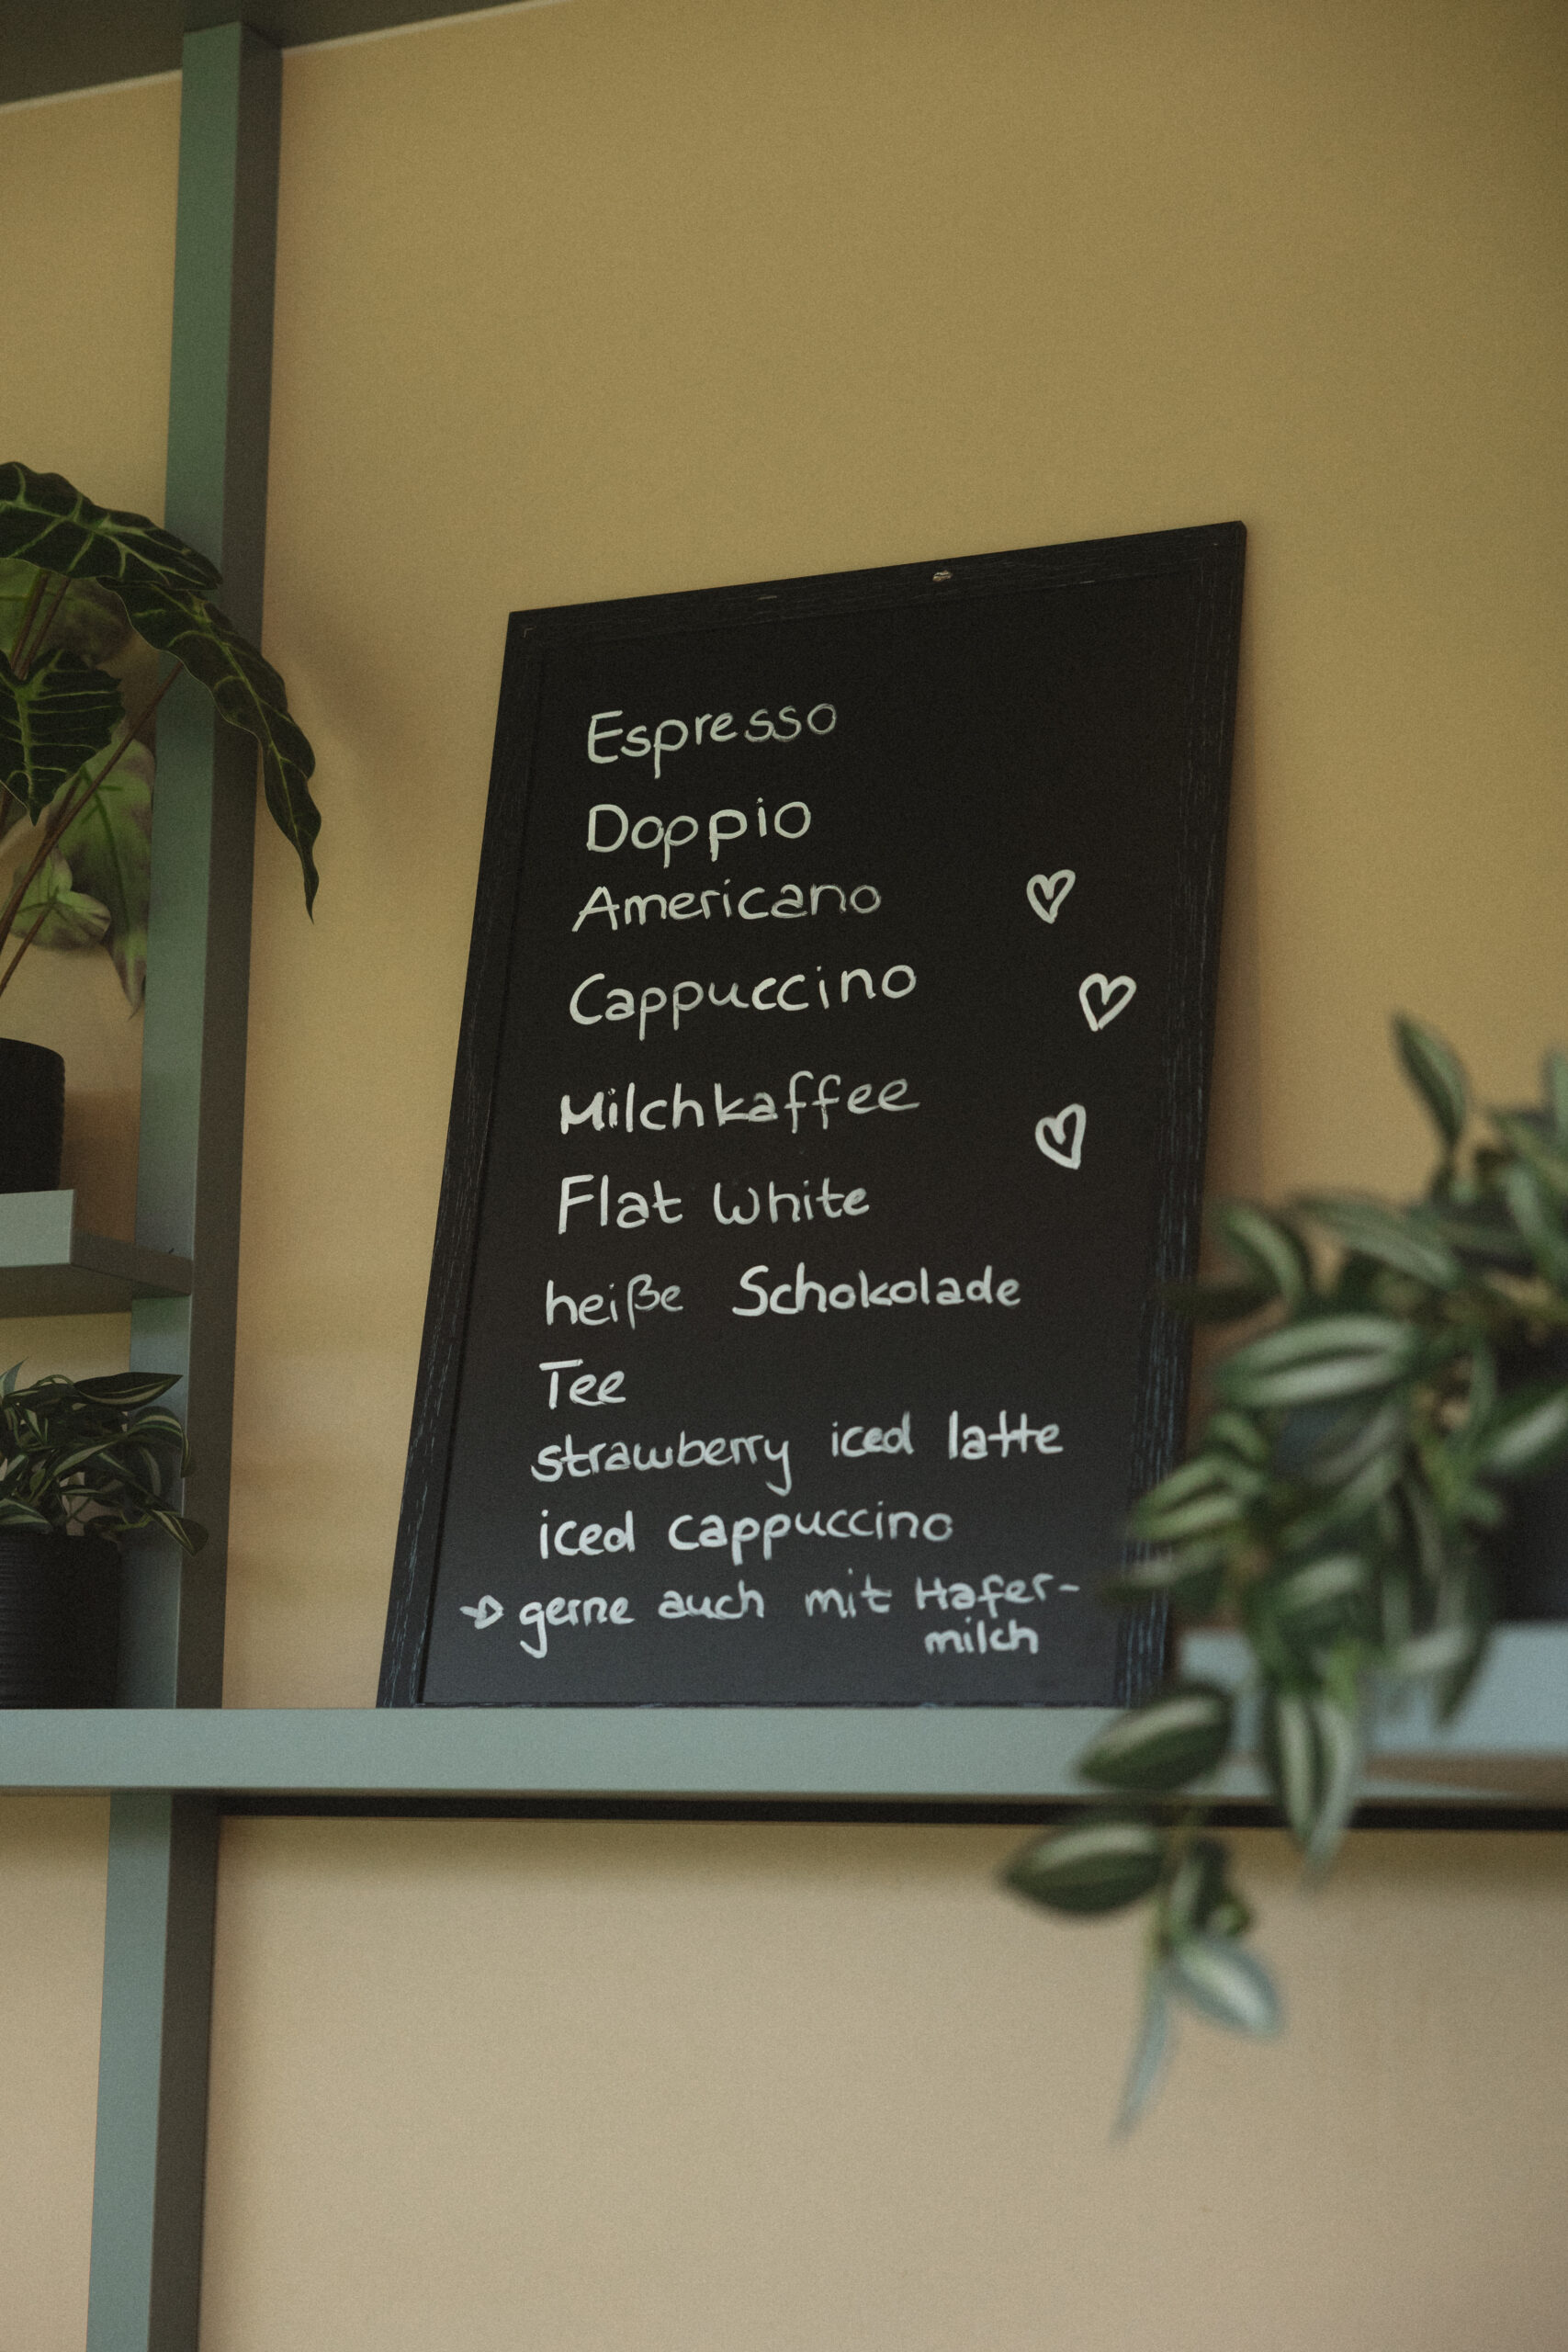 Espresso
Doppio
Americano
Cappuccino
Milchkaffee
Flat White
heiße Schokolade
Tee
strawberry iced latte
iced cappuccino
→ gerne auch mit Hafer-
milch